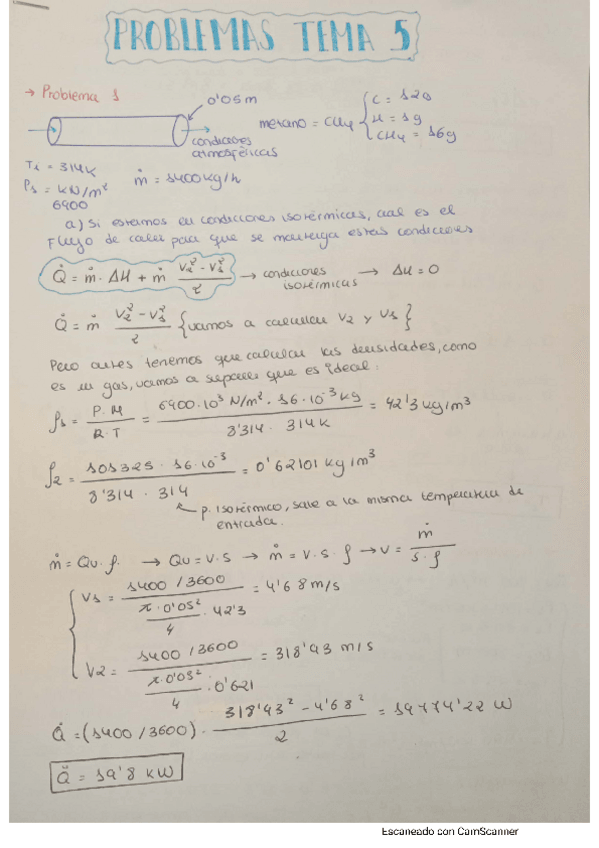 PROBLEMAS TEMA 5
→ Problema 1
0'05m
metano = CH4 { C = 12g
H = 1g
CH4 = 16g
condiciones atmosféricas
T1 = 314K
P1 = kN/m²
6900
ṁ = 1400kg/h
a) Si estamos en condiciones isotérmicas, cual es el
Flujo de calor para que se mantenga estas condiciones
Q̇ = ṁ · ΔH + ṁ (V2² - V1²)/2 → condiciones isotérmicas → ΔH = 0
Q̇ = ṁ (V2² - V1²)/2 {vamos a calcular V2 y V1}
Pero antes tenemos que calcular las densidades, como
es un gas, vamos a suponer que es ideal:
ρ1 = P·M / R·T = 6900·10³ N/m² · 16·10⁻³ kg / 8'314 · 314K = 42'3 kg/m³
ρ2 = 101325 · 16·10⁻³ / 8'314 · 314 = 0'62101 kg/m³
↖ p. isotérmico, sale a la misma temperatura de
entrada.
ṁ = Qv·ρ. → Qv = V·S → ṁ = V·S·ρ → V = ṁ / S·ρ
V1 = 1400/3600 / (π·0'05²/4 · 42'3) = 4'68 m/s
V2 = 1400/3600 / (π·0'05²/4 · 0'621) = 318'93 m/s
Q̇ = (1400/3600) · (318'93² - 4'68²)/2 = 19774'22 W
Q̇ = 19'8 kW
Escaneado con CamScanner